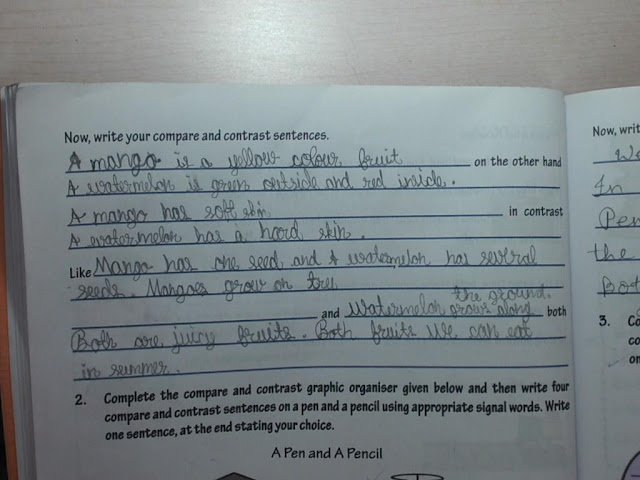 Now, write your compare and contrast sentences.
A mango is a yellow colour fruit on the other hand
A watermelon is green outside and red inside.
A mango has soft skin in contrast
A watermelon has a hard skin.
Like Mango has one seed and A watermelon has several
seeds. Mangoes grow on tree
the ground.
and Watermelon grows along both
Both are juicy fruits. Both fruits we can eat
in summer.
2. Complete the compare and contrast graphic organiser given below and then write four
compare and contrast sentences on a pen and a pencil using appropriate signal words. Write
one sentence, at the end stating your choice.
A Pen and A Pencil
Now, writ
In
Pen
the
Bot
3. Co
co
on